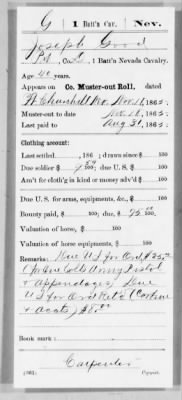 G 1 Batt'n Cav. Nev.
Joseph Good
Pvt, Co. , 1 Batt'n Nevada Cavalry.
Age 40 years.
Appears on Co. Muster-out Roll, dated
Ft. Churchill Nev. Nov. 18, 1865.
Muster-out to date Nov. 18, 1865.
Last paid to Aug 31, 1865.
Clothing account:
Last settled , 186 ; drawn since $ 100
Due soldier $ 100; due U. S. $ 100
Am't for cloth'g in kind or money adv'd $ 100
Due U. S. for arms, equipments, &c., $ 100
Bounty paid $ 100; due $ 100
Valuation of horse, $ 100
Valuation of horse equipments, $ 100
Remarks: Due U S for Ord $
Colts Army Pistol
& appendages) Due
U S for
Book mark:
Carpenter
(361) Copyist.